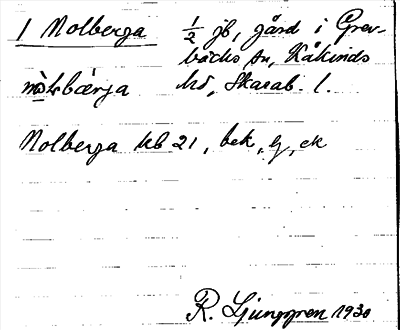 1 Molberga ½ jb, gård i Grev-
bäcks sn, Kåkinds
hd, Skarab. l.
Molberga kb 21, bek, ly, ek
R. Ljunggren 1930